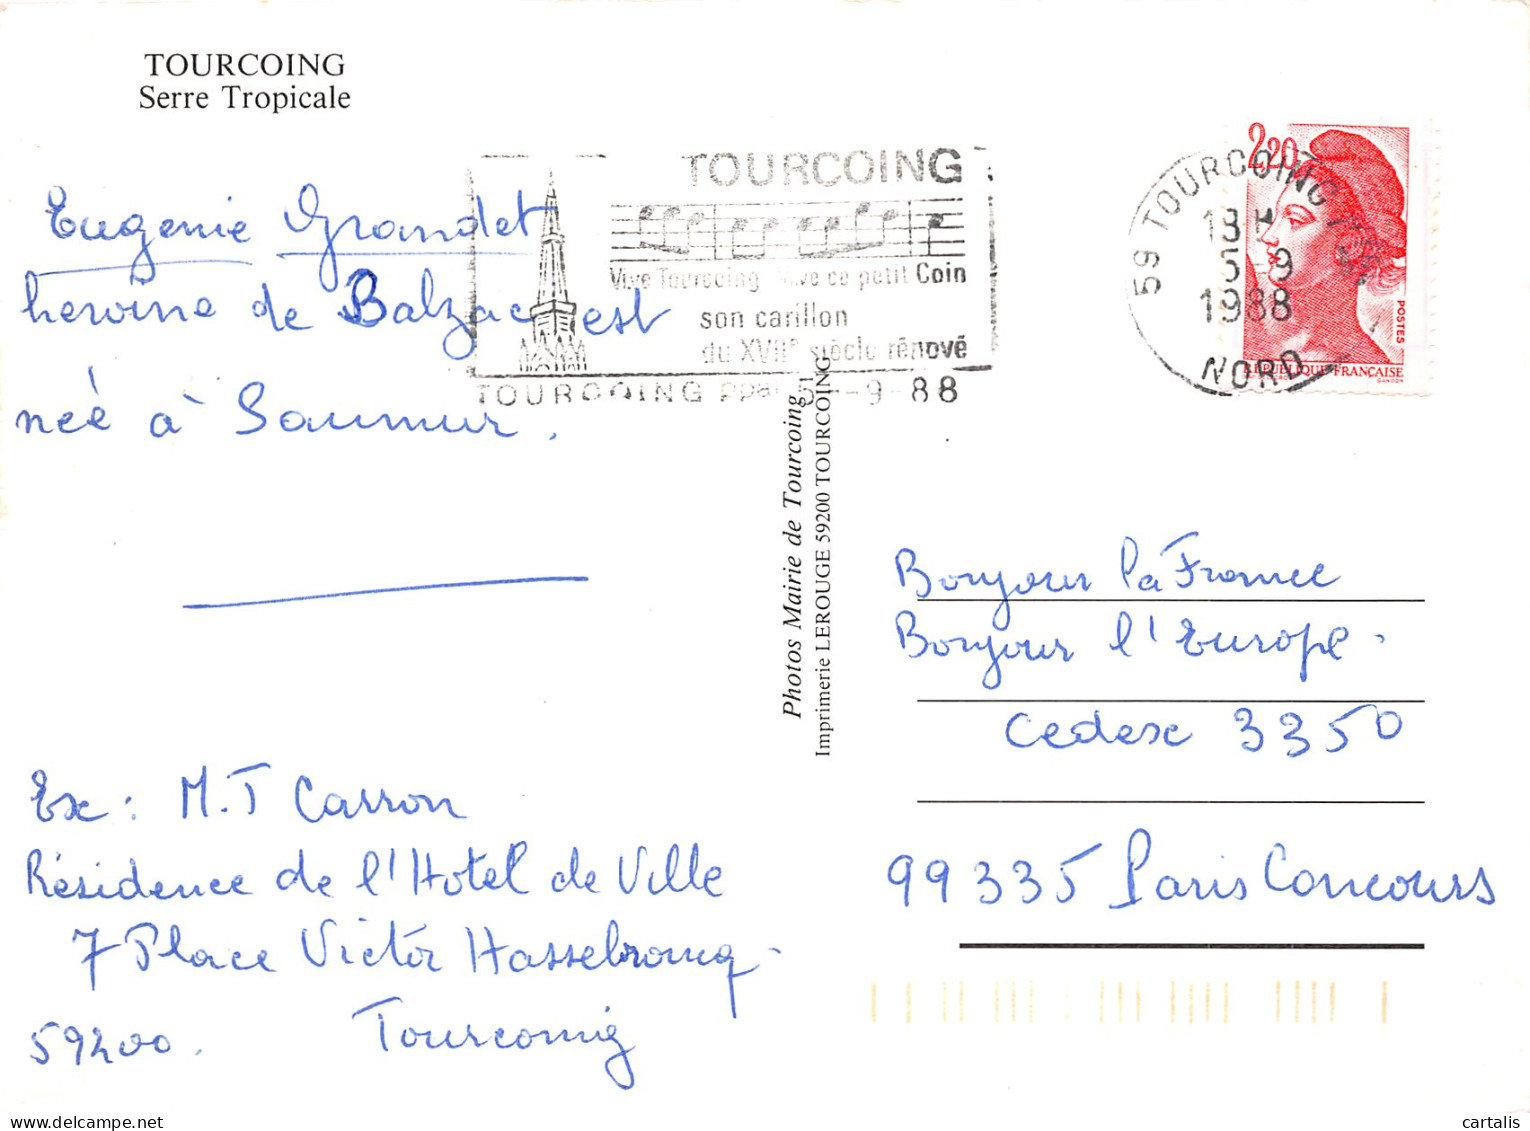 TOURCOING
Serre Tropicale
Eugenie Grandet
heroine de Balzac est
née à Saumur.
TOURCOING
Vive Tourcoing Vive ce petit Coin
son carillon
du XVIIe siècle rénové
TOURCOING PPAL 5-9-88
59 TOURCOING
5-9
1988
NORD
2,20
POSTES
REPUBLIQUE FRANÇAISE
GANDON
Photos Mairie de Tourcoing
Imprimerie LEROUGE 59200 TOURCOING
Bonjour la France
Bonjour l'Europe.
Cedex 3350
99335 Paris Concours
Ex: M.T Carron
Résidence de l'Hotel de Ville
7 Place Victor Hassebroucq.
59200. Tourcoing
cartalis
delcampe.net